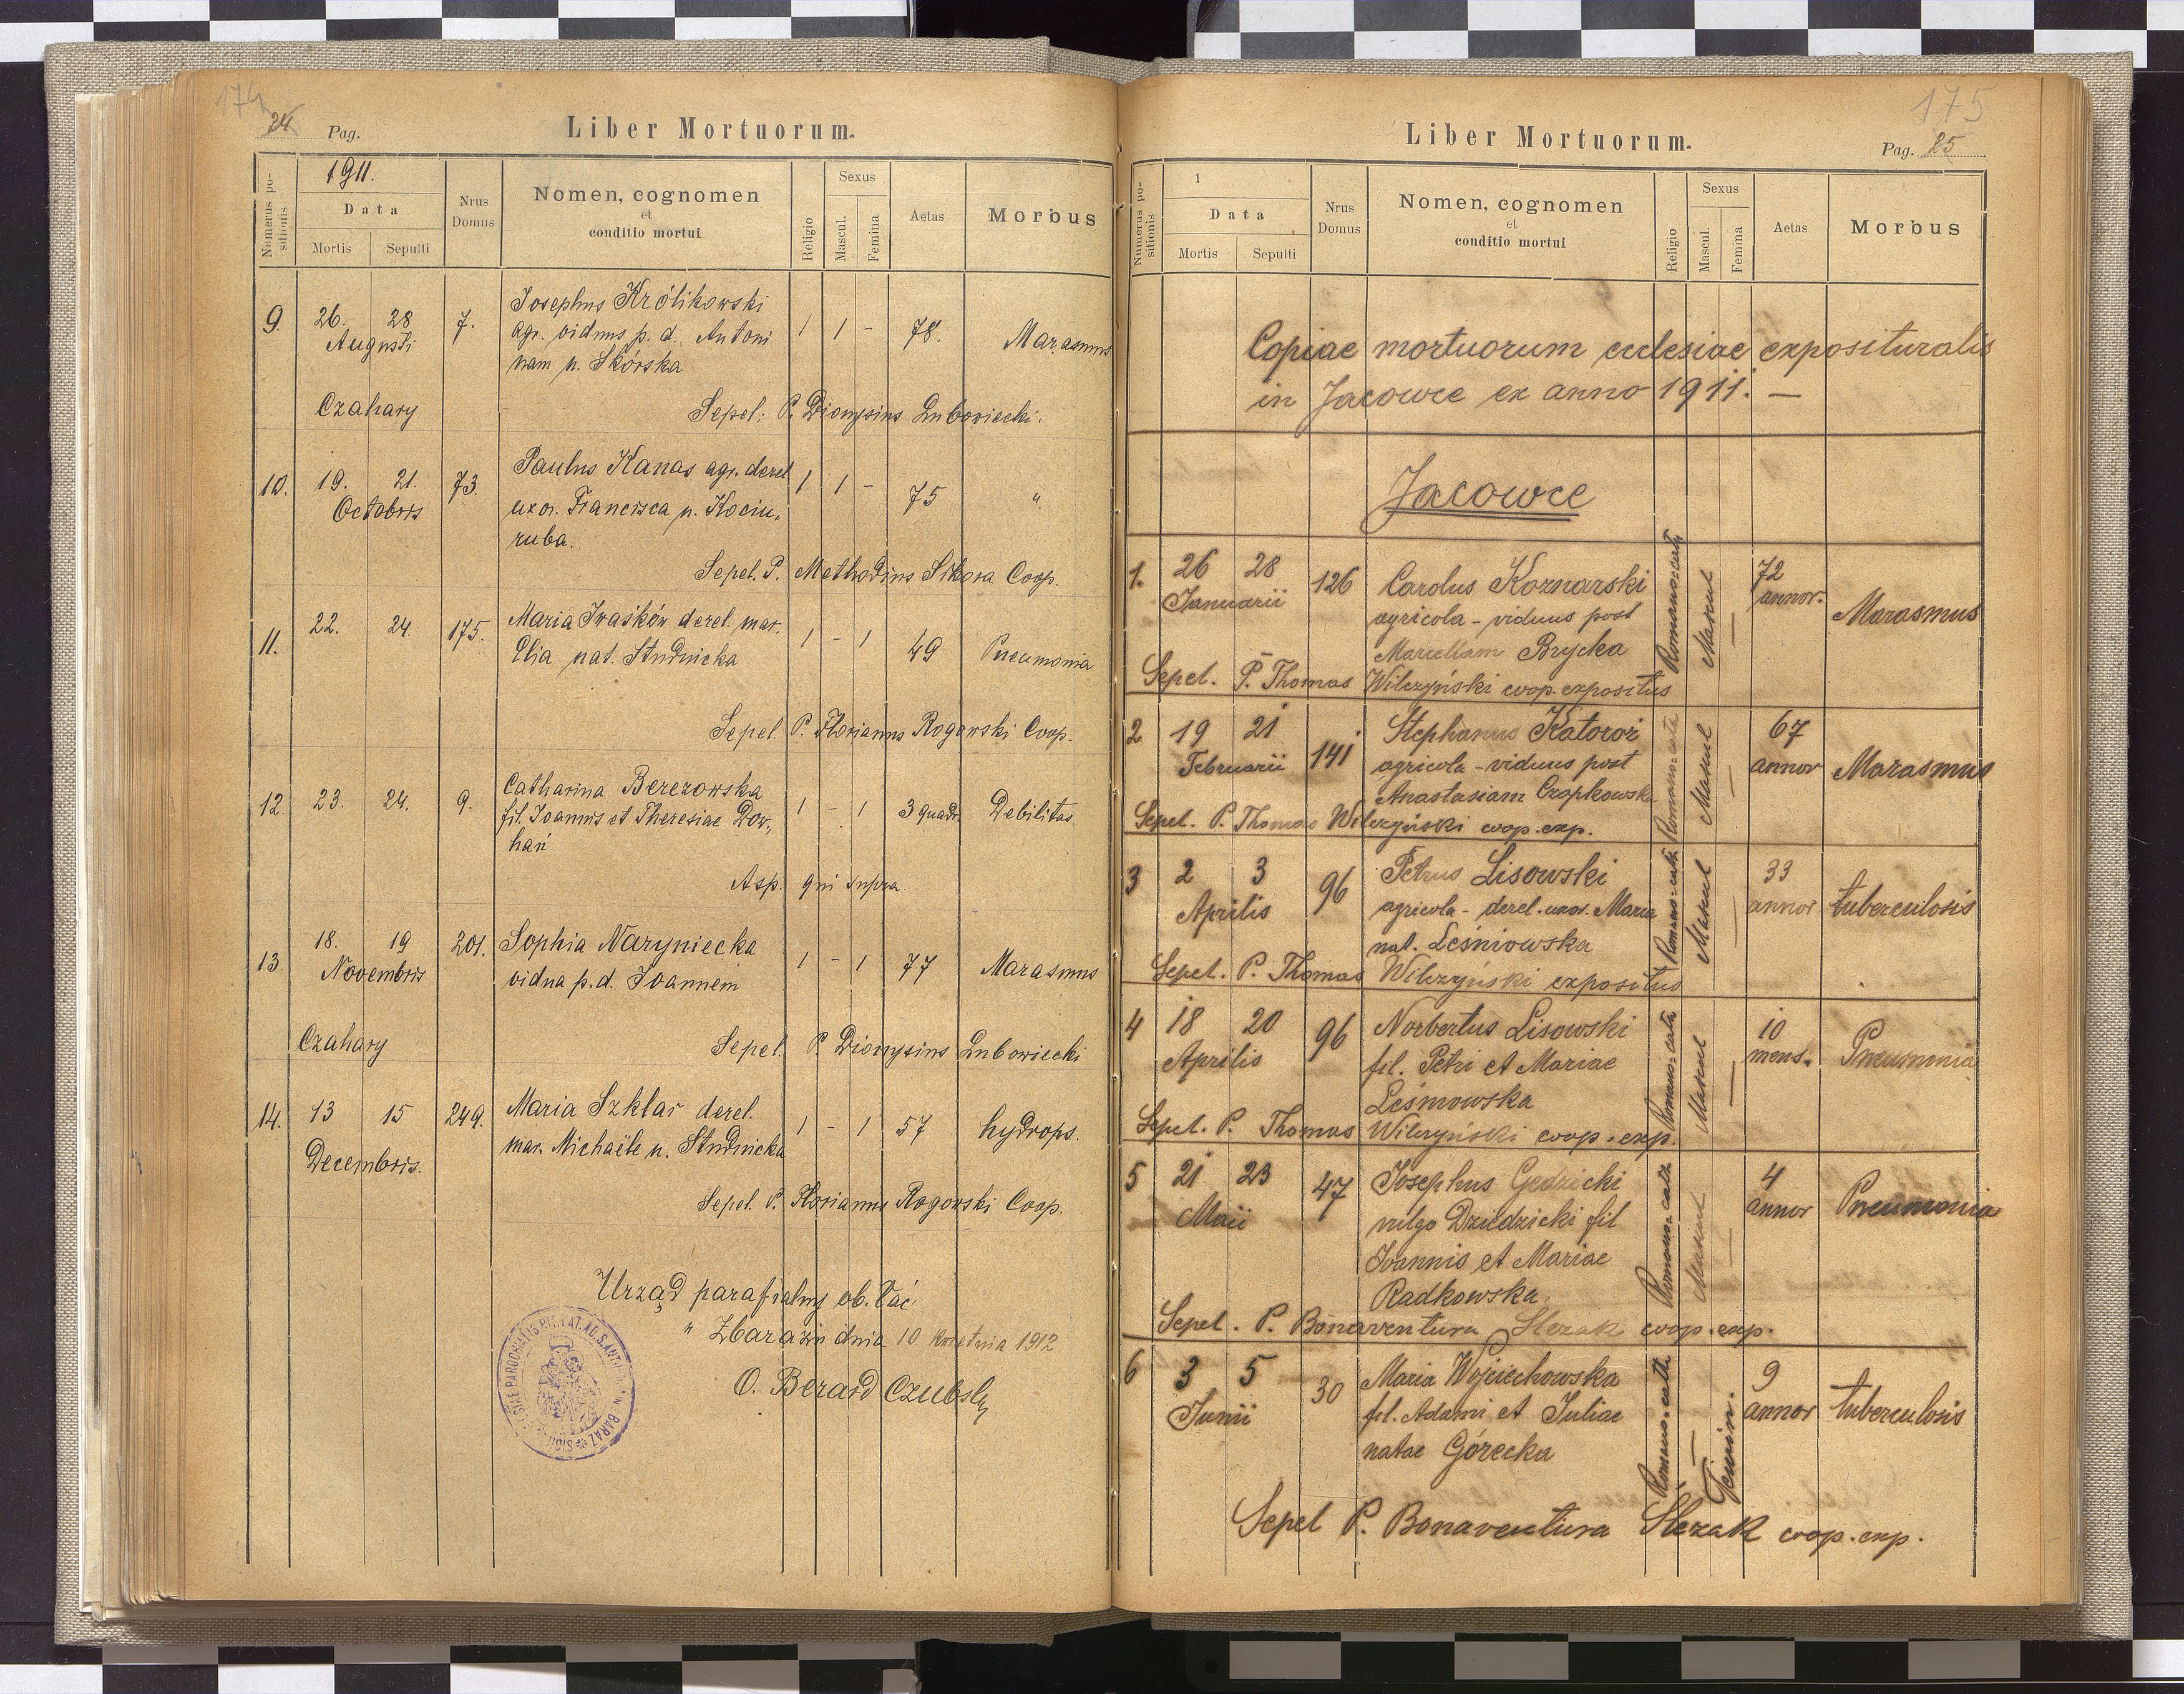 174
24 Pag.
Liber Mortuorum.
Numerus positionis
1911.
Data
Mortis Sepulti
Nrus Domus
Nomen, cognomen
et
conditio mortui
Religio
Sexus
Mascul. Femina
Aetas
Morbus
9. 26. 28 7. Josephus Królikowski 1 1 - 78. Marasmus
Augusti agr. viduus p. d. Antoni
nam n. Skórska
Czahary Sepel: P. Dionysius Luboviecki.
10. 19. 21. 73. Paulus Kanas agr. derel. 1 1 - 75 "
Octobris uxor. Francisca n. Kociu,
ruba.
Sepel. P. Methodius Sikora Coop.
11. 22. 24. 175. Maria Iwaśków derel. mar. 1 - 1 49 Pneumonia
Elia nat. Studnicka
Sepel P. Florianus Rogowski Coop.
12 23. 24. 9. Catharina Berezowska 1 - 1 3 quadr. Debilitas
fil. Joannis et Theresiae Dow,
hań
Asp. qui supra.
13 18. 19 201. Sophia Naryniecka 1 - 1 77 Marasmus
Novembris vidua p. d. Joannem
Czahary Sepel. P. Dionysius Luboviecki
14. 13 15 249. Maria Szklar derel. 1 - 1 57 hydrops.
Decembris. mar. Michaële n. Studnicka
Sepel. P. Florianus Rogowski Coop.
Urząd parafialny ob. łać.
" Zbarażu dnia 10 kwietnia 1912
O. Berard Czubsky
175
Liber Mortuorum.
Pag. 25
Numerus positionis
1
Data
Mortis Sepulti
Nrus Domus
Nomen, cognomen
et
conditio mortui
Religio
Sexus
Mascul. Femina
Aetas
Morbus
Copiae mortuorum ecclesiae exposituralis
in Jacowce ex anno 1911. —
Jacowce
1. 26 28 126 Carolus Koznarski Romano-cath Mascul — 72 annor. Marasmus
Januarii agricola - viduus post
Marcellam Brycka
Sepel. P. Thomas Wilczyński coop. expositus
2 19 21 141 Stephanus Romano-cath Mascul — 67 annor Marasmus
Februarii agricola - viduus post
Anastasiam Czapkowska
Sepel. P. Thomas Wilczyński coop. exp.
3 2 3 96 Petrus Lisowski Romano-cath Mascul — 33 annor tuberculosis
Aprilis agricola - derel. uxor. Maria
nat. Leśniowska
Sepel. P. Thomas Wilczyński expositus
4 18 20 96 Norbertus Lisowski Romano-cath Mascul — 10 mens. Pneumonia
Aprilis fil. Petri et Mariae
Leśniowska
Sepel. P. Thomas Wilczyński coop. exp.
5 21 23 47 Josephus Gedzicki Romano-cath Mascul — 4 annor Pneumonia
Maii vulgo Dziedzicki fil
Joannis et Mariae
Radkowska.
Sepel. P. Bonaventura Slezak coop. exp.
6 3 5 30 Maria Wojciechowska Romano-cath — Femin. 9 annor tuberculosis
Junii fil. Adami et Juliae
natae Górecka
Sepel P. Bonaventura Slezak coop. exp.